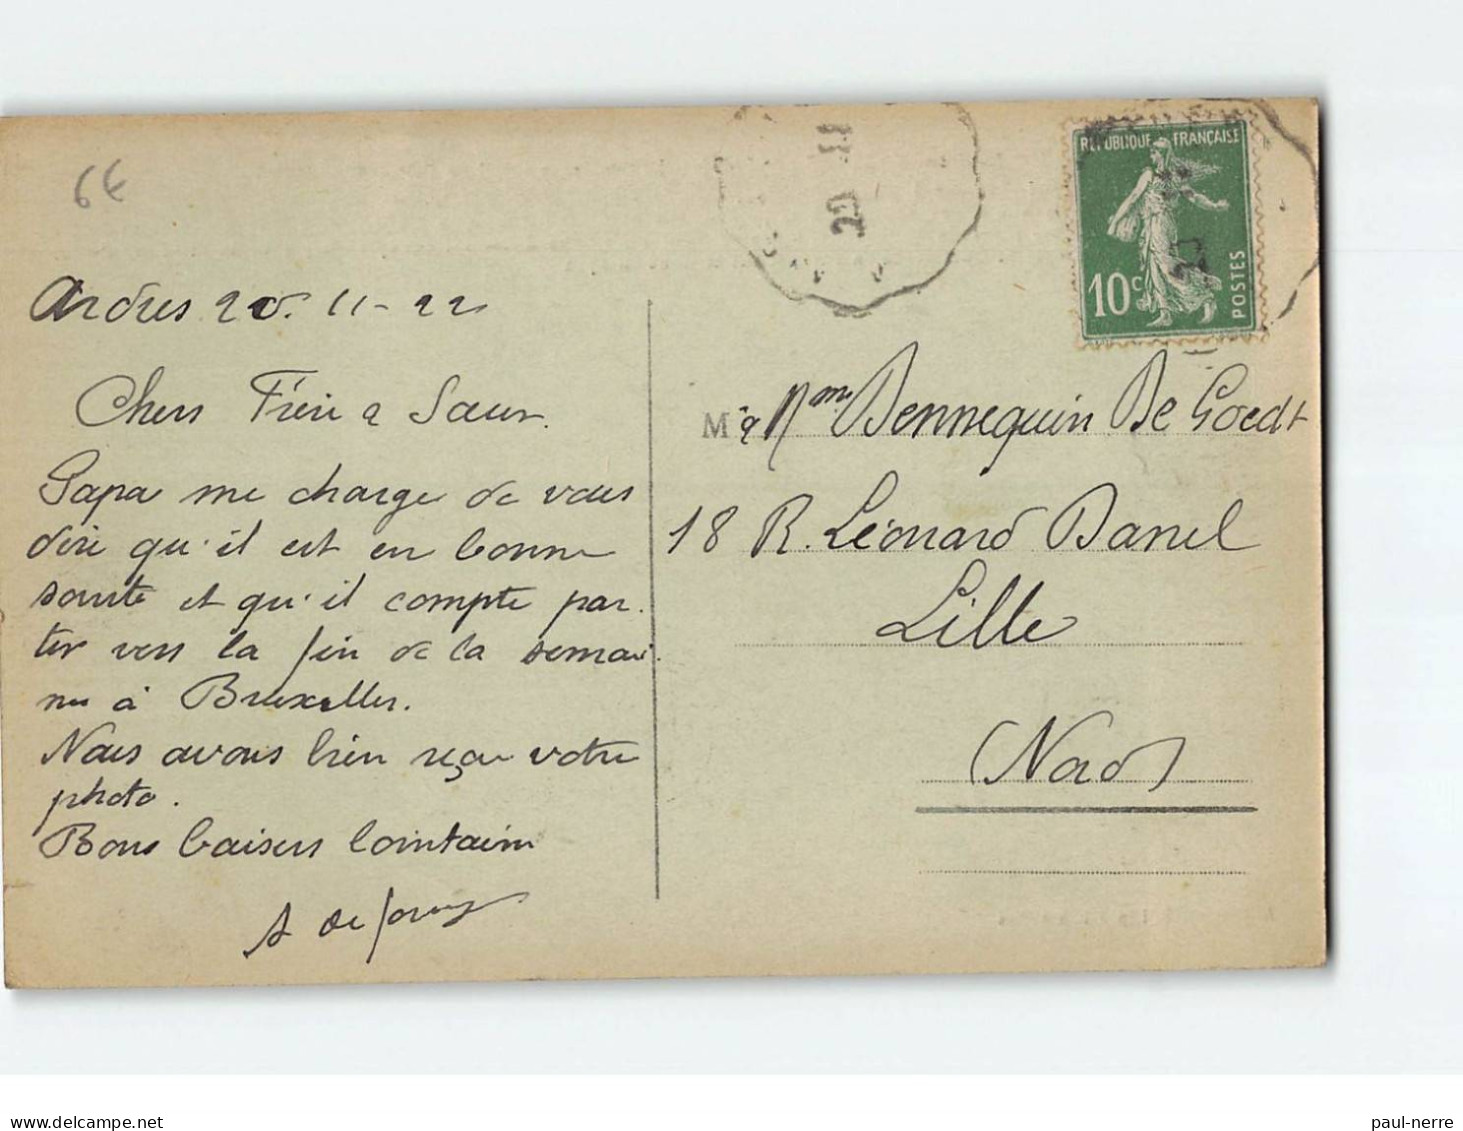 6€
11
20
REPUBLIQUE FRANÇAISE
10c
POSTES
Ardres 20. 11 - 22
Chers Frère & Sœur.
Papa me charge de vous
dire qu'il est en bonne
santé et qu'il compte par.
tir vers la fin de la semai.
ne à Bruxelles.
Nous avons bien reçu votre
photo.
Bons baisers lointains
M & Mme Dennequin De Goedt
18 R. Léonard Danel
Lille
(Nord)
delcampe.net
paul-nerre